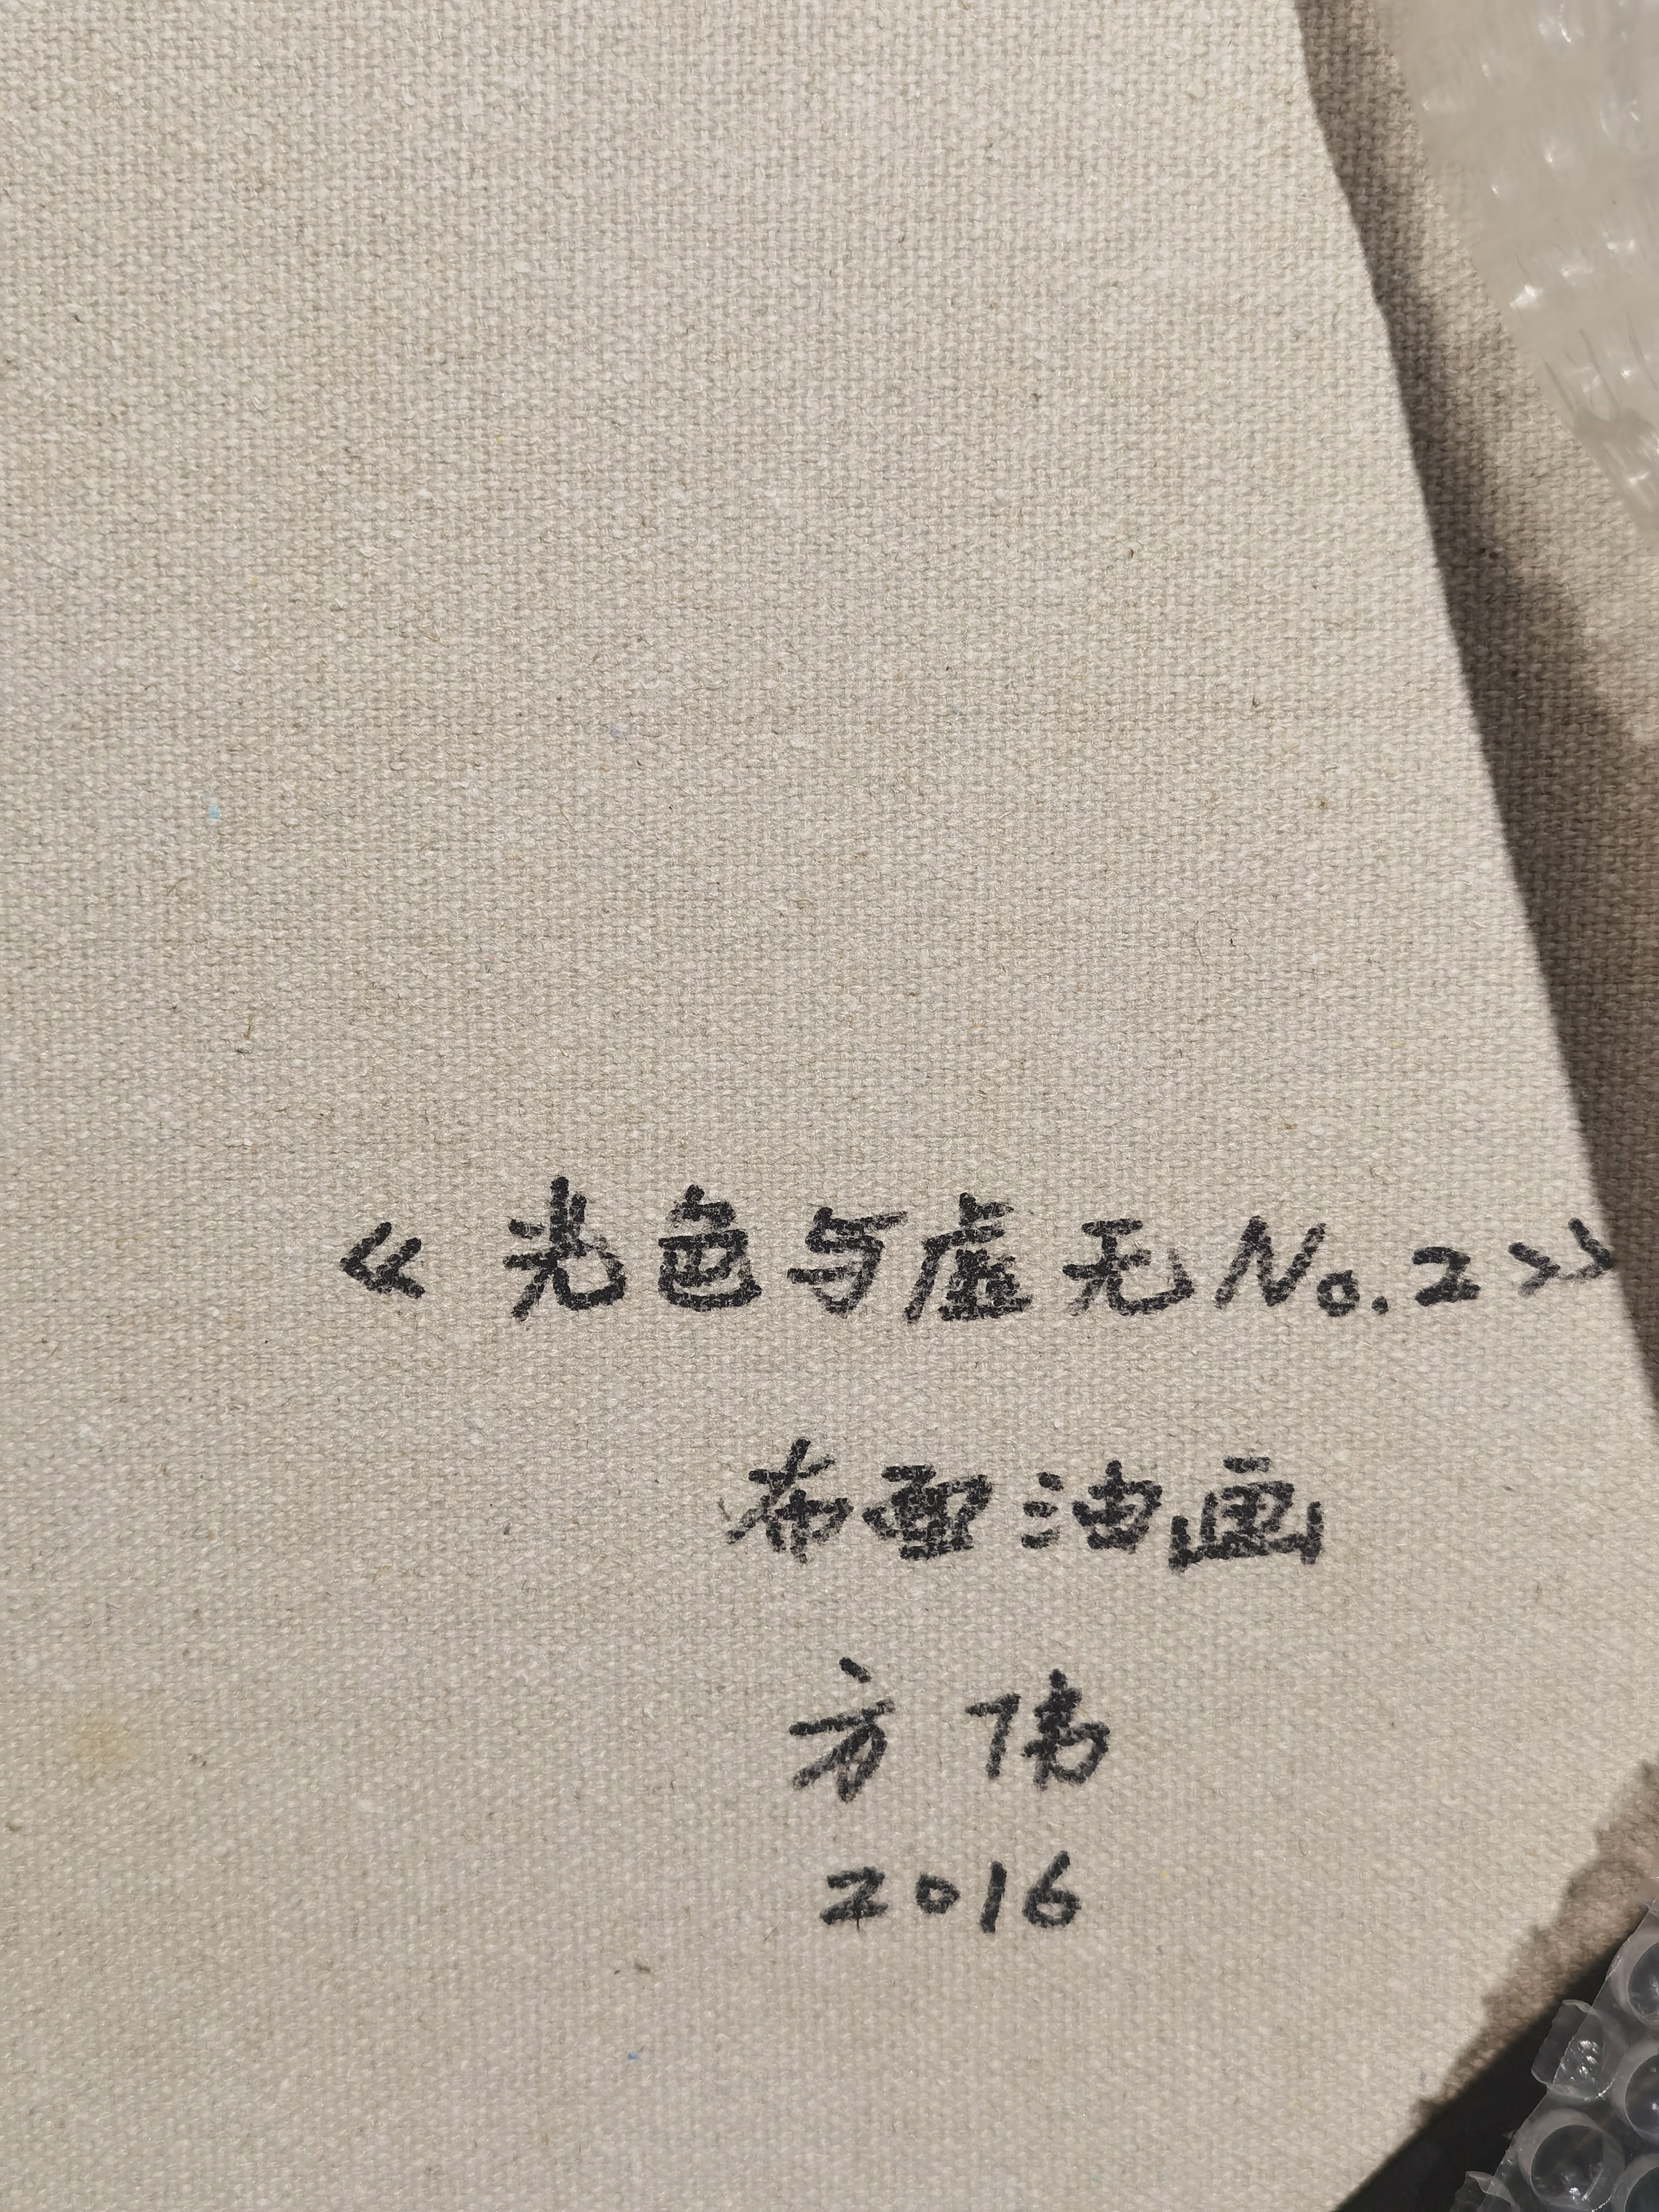 《光色与虚无No.2》
布面油画
方伟
2016